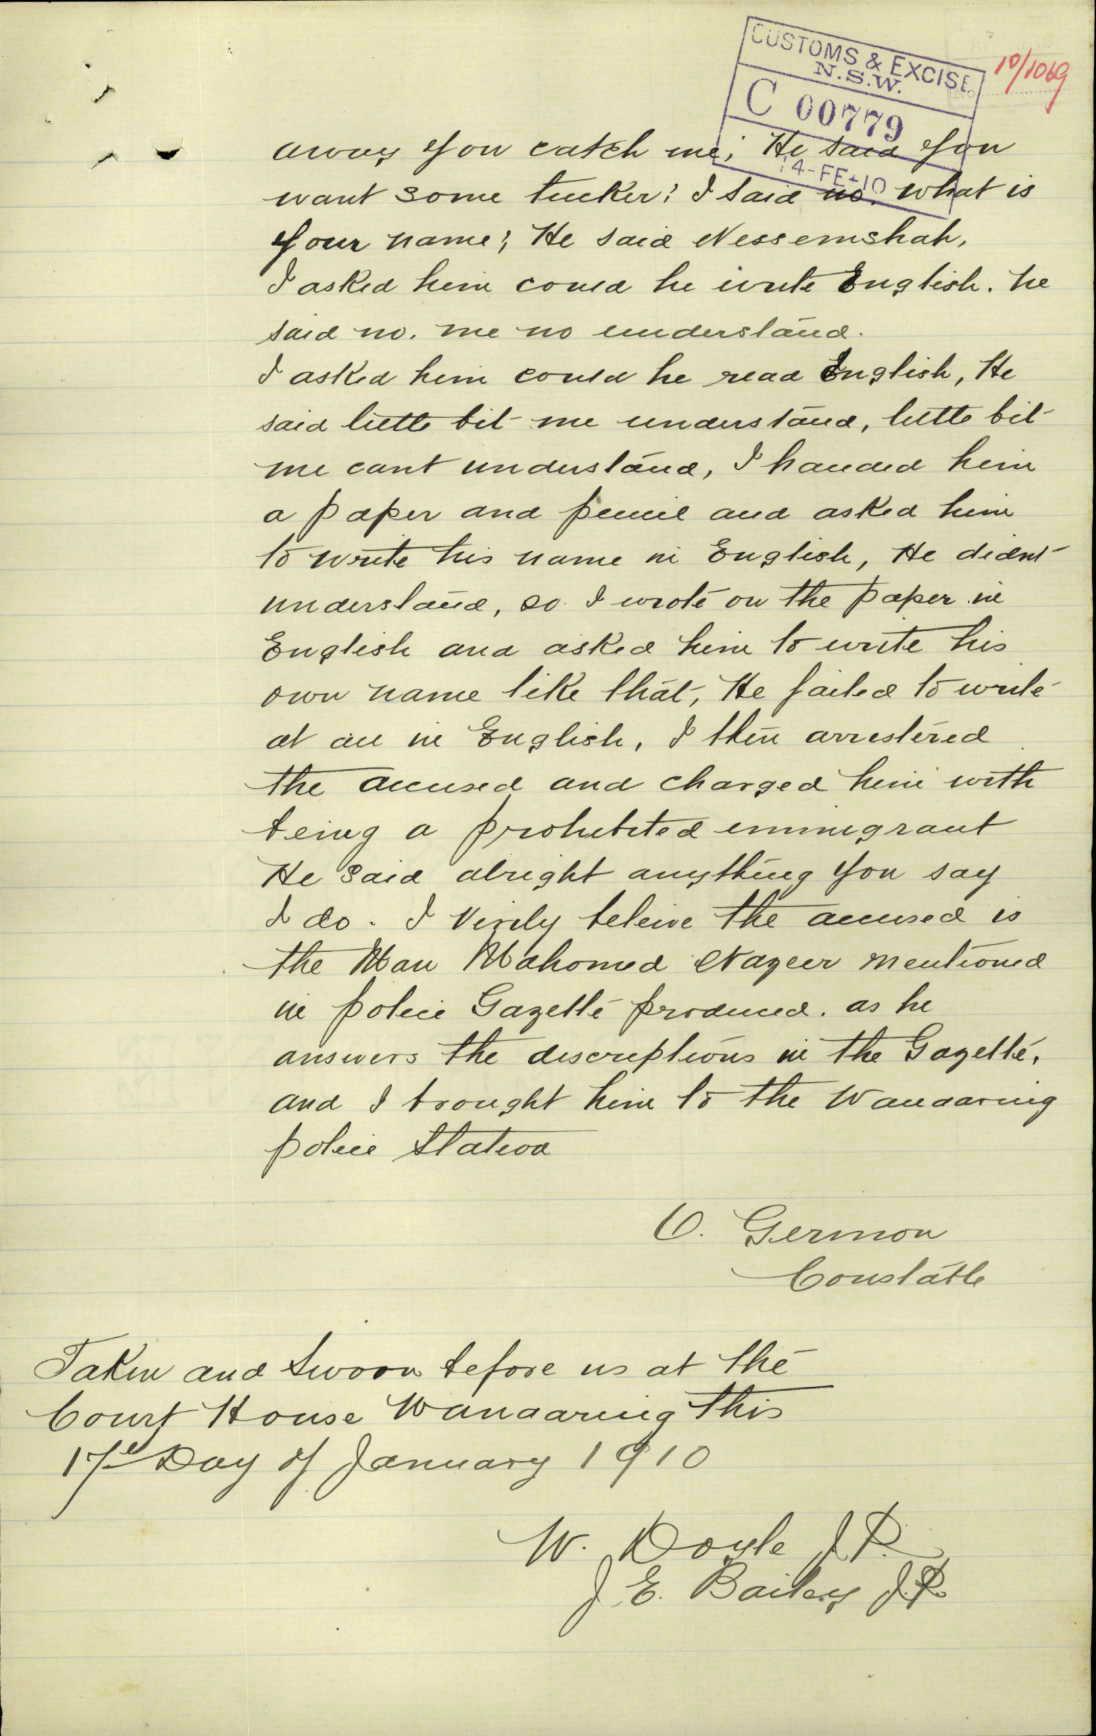 CUSTOMS & EXCISE
N.S.W.
C 00779
14-FE-10
10/1069
away you catch me; He said you
want some tucker; I said no. what is
your name; He said Nessemshah,
I asked him could he write English. he
said no. me no understand.
I asked him could he read English, He
said little bit me understand, little bit
me cant understand, I handed him
a paper and pencil and asked him
to write his name in English, He didnt
understand, so I wrote on the paper in
English and asked him to write his
own name like that, He failed to write
at all in English, I then arrestered
the accused and charged him with
being a prohibited immigrant
He said alright anything you say
I do. I Virily beleive the accused is
the Man Mahomed Nazeer mentioned
in police Gazette produced. as he
answers the discriptions in the Gazette,
and I brought him to the Wanaaring
police Station
C. Germon
Constable
Taken and Sworn before us at the
Court House Wanaaring this
17th Day of January 1910
W. Doyle J.P.
J. E. Bailey J.P.